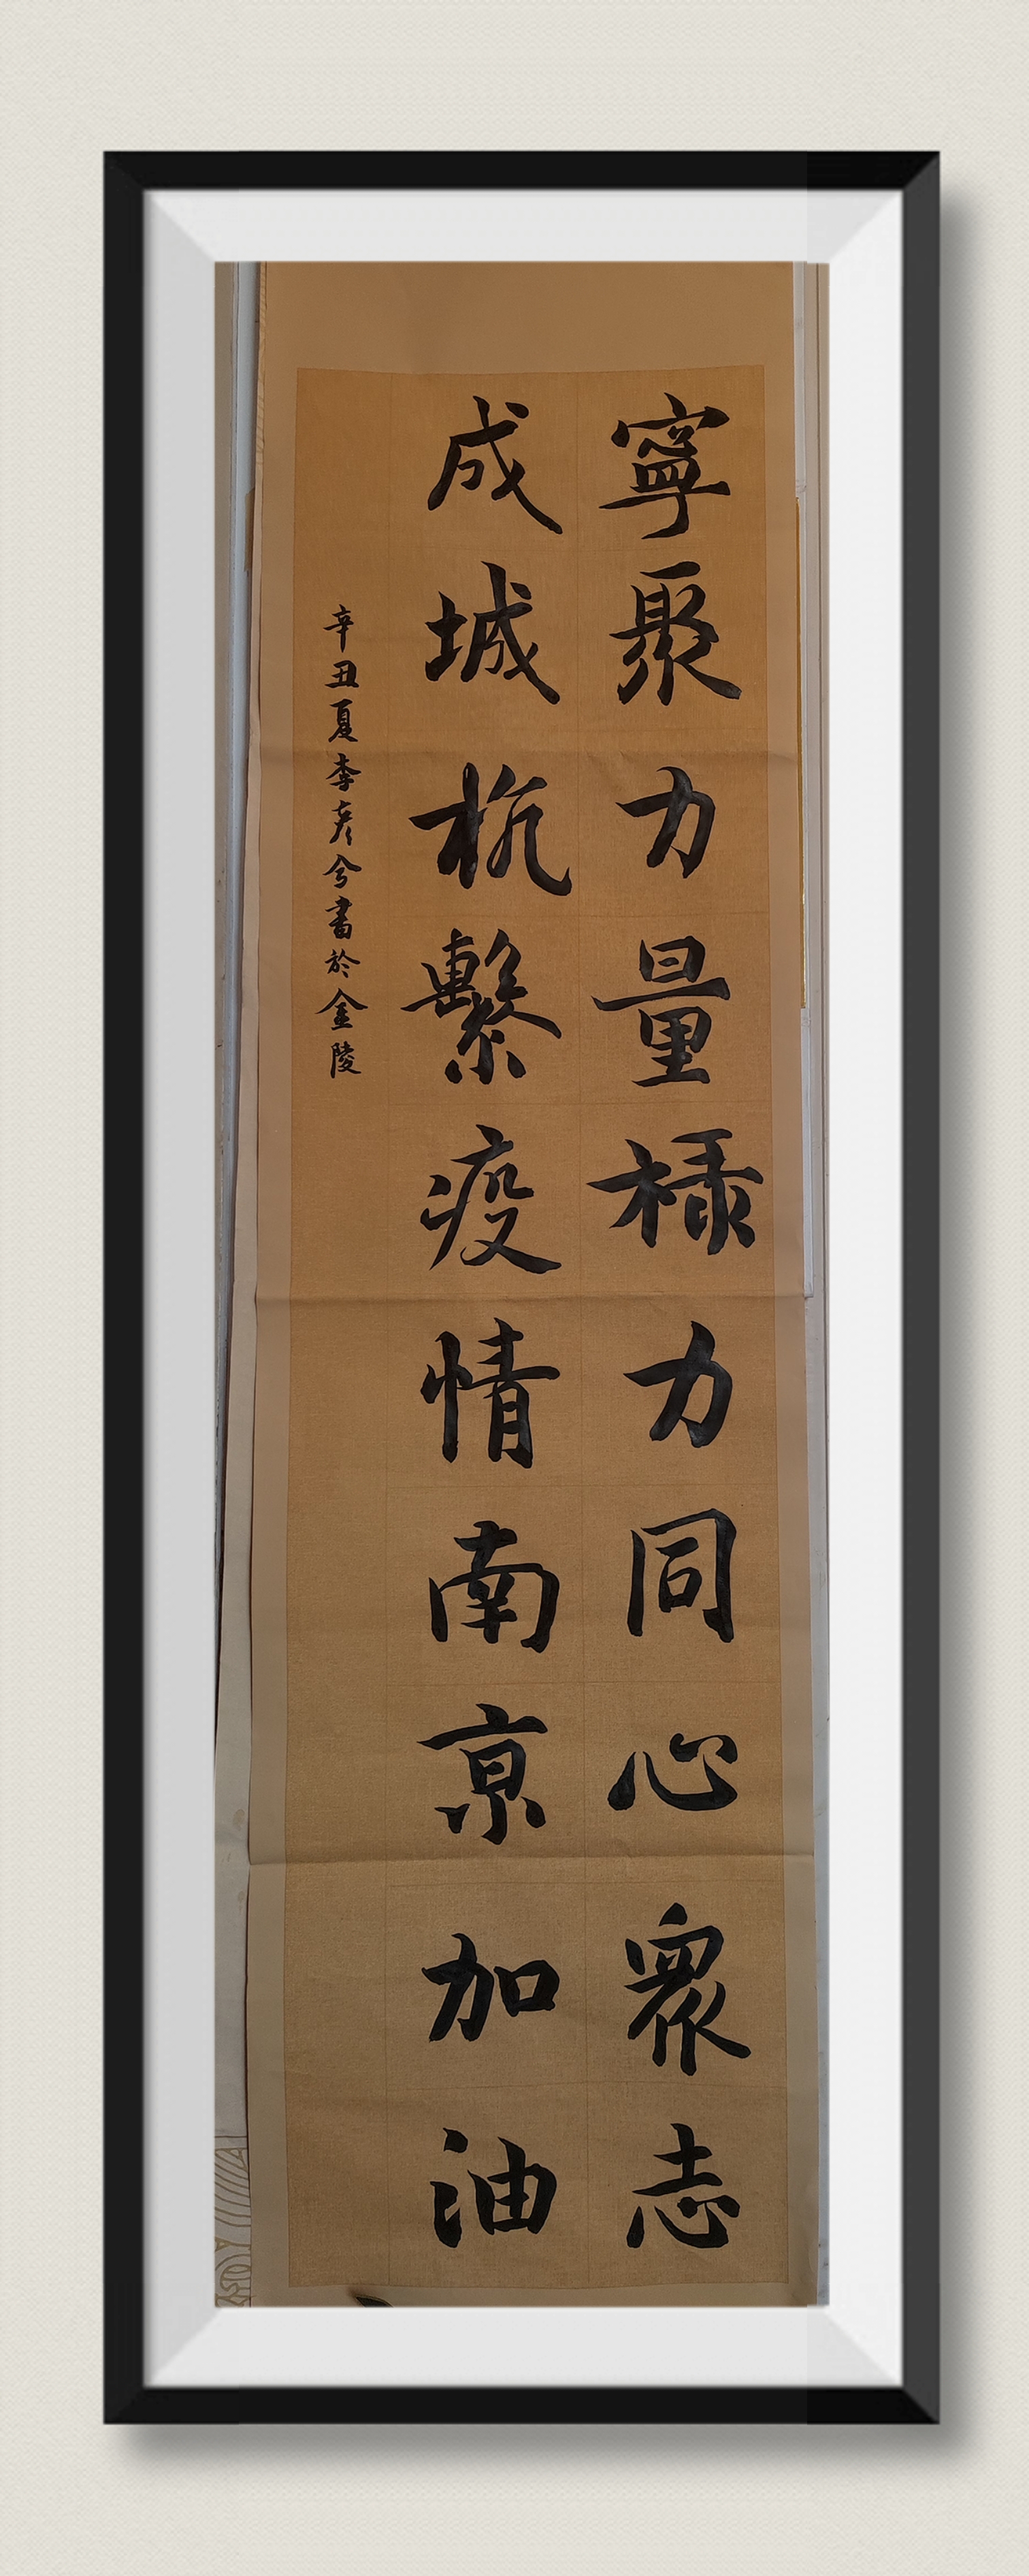 寧聚力量禄力同心衆志
成城杭繫疫情南京加油
辛丑夏李彦兮書於金陵